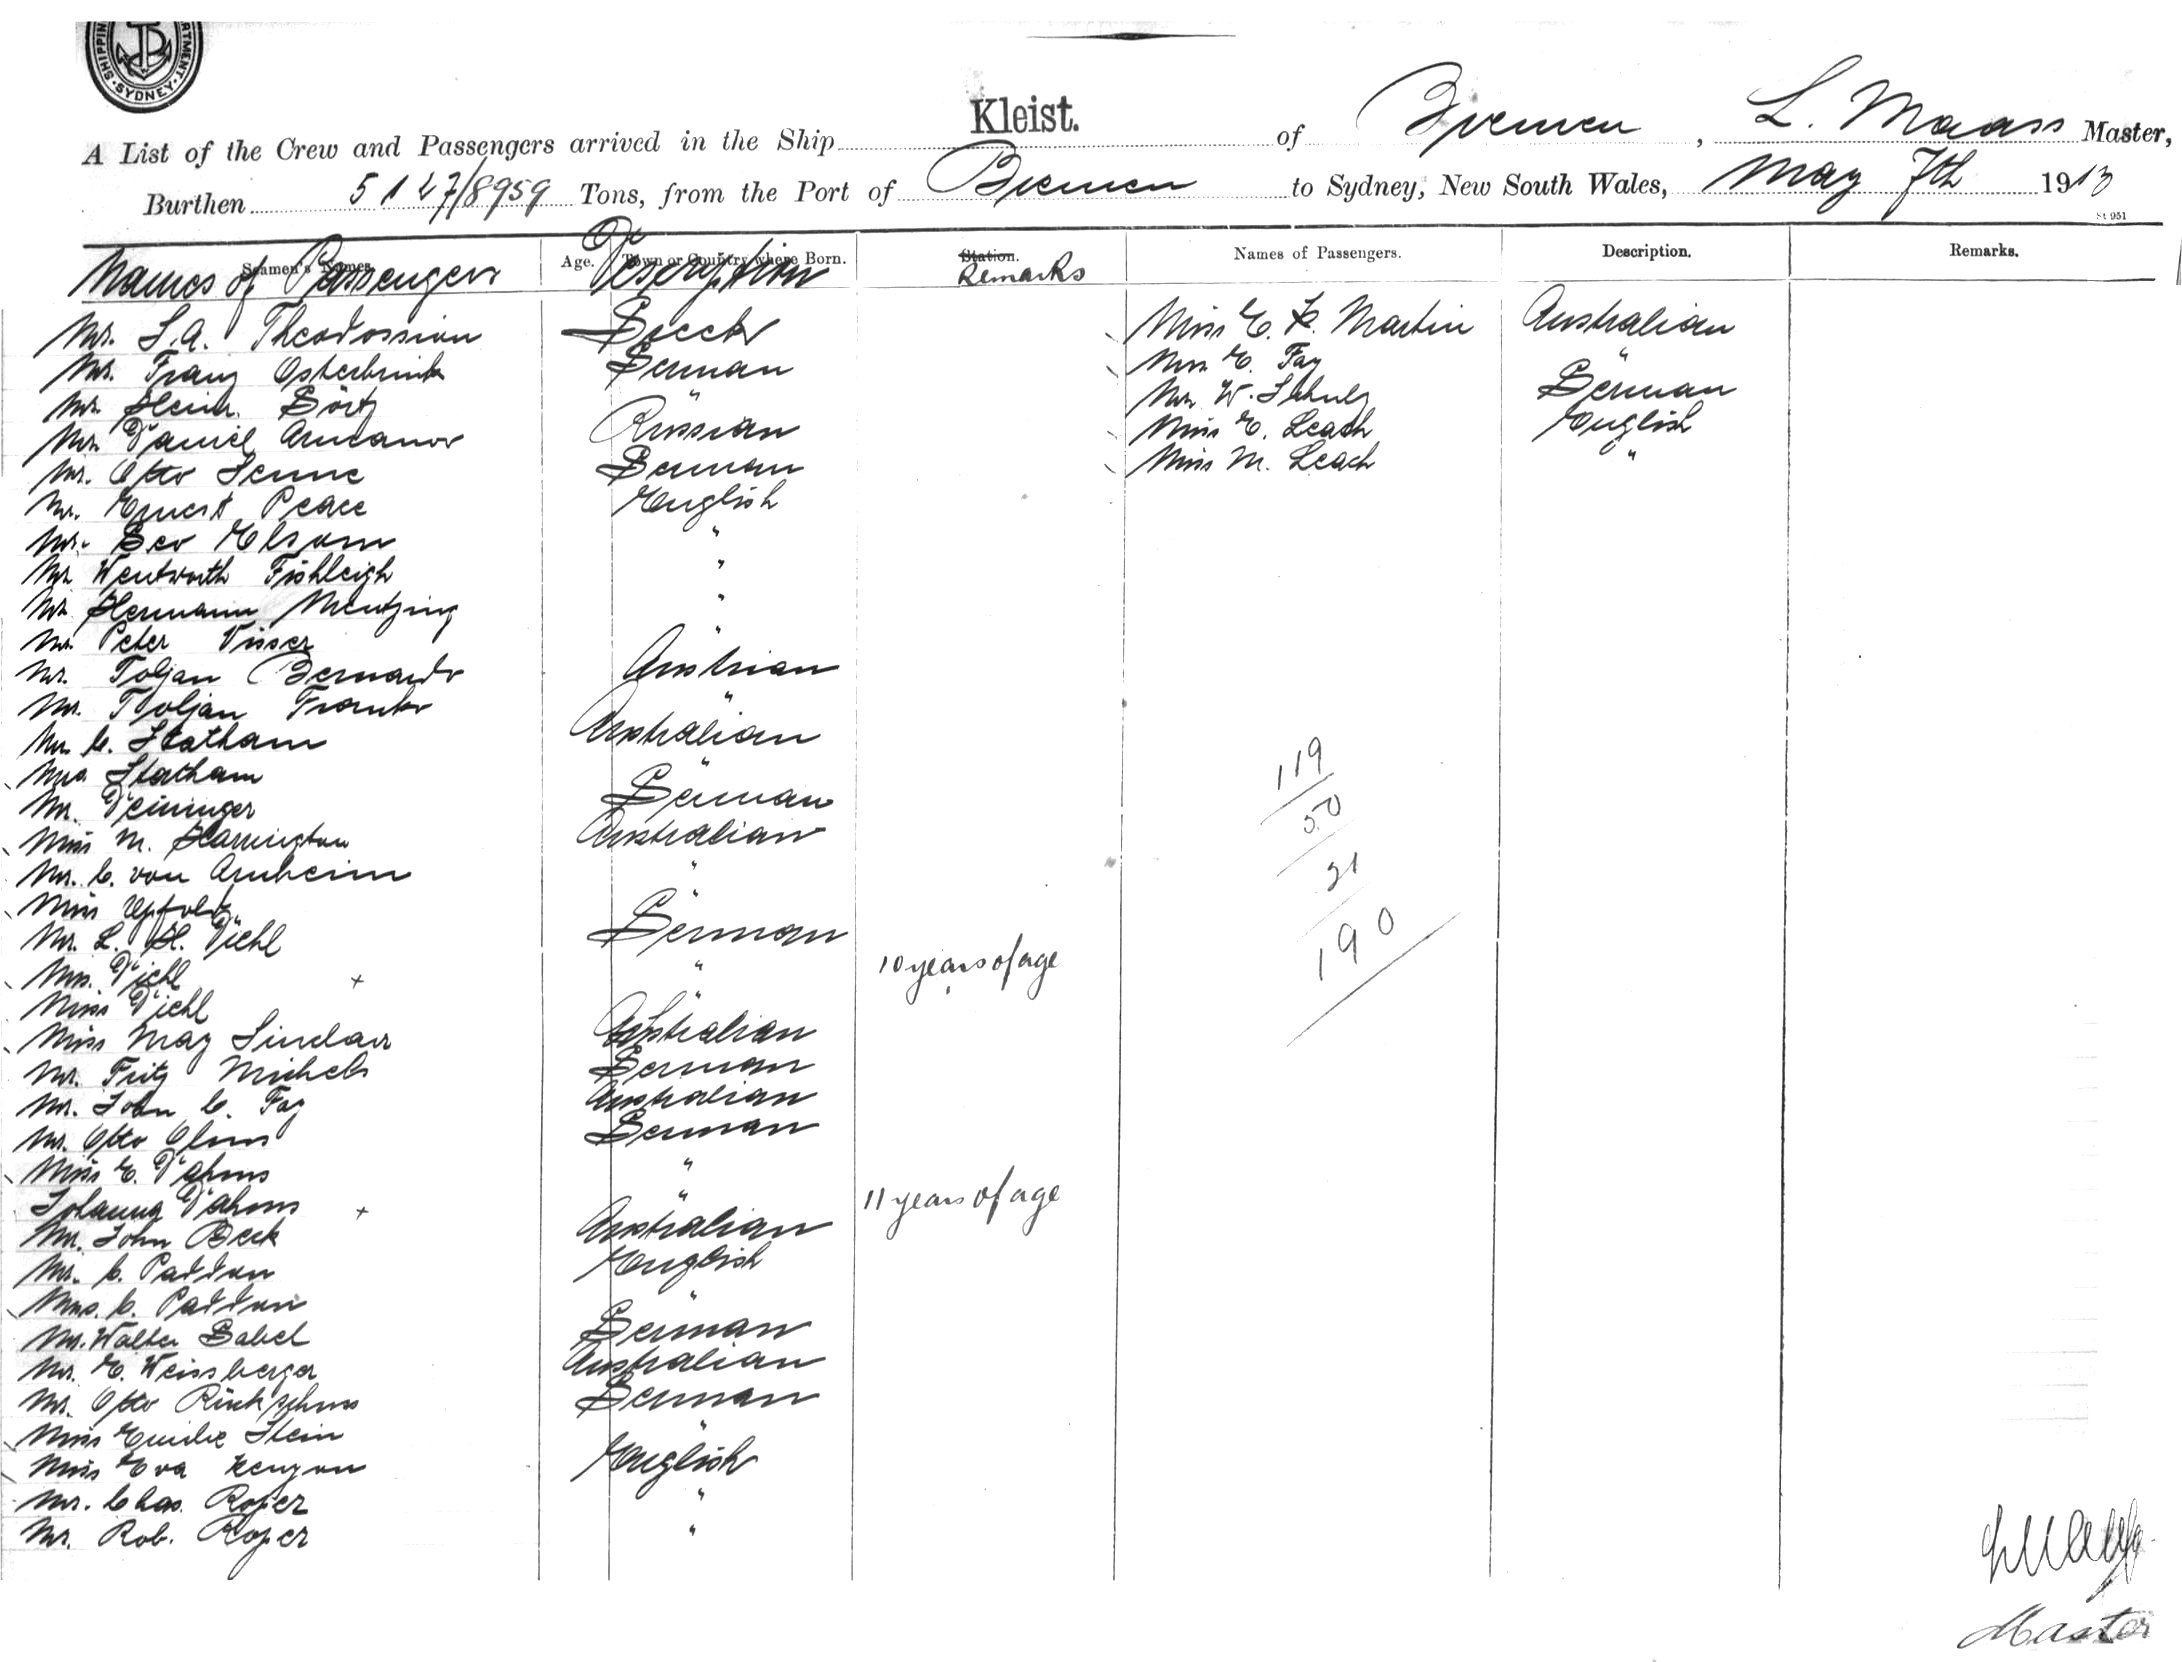 SHIPPIN RTMENT. SYDNEY
Kleist.
A List of the Crew and Passengers arrived in the Ship Kleist. of Bremen, L. Maass Master,
Burthen 5127/8959 Tons, from the Port of Bremen to Sydney, New South Wales, May 7th 1913
St 951
Seamen's Names. Age. Town or Country where Born. Station. Names of Passengers. Description. Remarks.
Names of Passengers Description Remarks
Mr. S.A. Theodossion Greek
Mr. Franz Osterbrink German
Mr. Heinr. Görtz "
Mr. Daniel Amcanow Russian
Mr. Otto Senne German
Mr. Ernest Peace English
Mr. Geo Elsom "
Mr. Wentworth Fishleigh "
Mr. Hermann Mentzing "
Mr. Peter Visser "
Mr. Toljan Bernardo Austrian
Mr. Toljan Franko "
Mr. C. Statham Australian
Mrs. Statham "
Mr. Deininger German
Miss M. Harrington Australian
Mr. C. von Arnheim "
Miss Upfold "
Mr. L. H. Diehl German
Mrs. Diehl "
Miss Diehl + " 10 years of age
Miss May Sinclair Australian
Mr. Fritz Michels German
Mr. John C. Fay Australian
Mr. Otto Olms German
Miss E. Dahms "
Johanna Dahms + " 11 years of age
Mr. John Beck Australian
Mr. C. Paddon English
Mrs. C. Paddon "
Mr. Walter Gabel German
Mr. E. Weissberger Australian
Mr. Otto German
Miss Emilie Stein "
Miss Eva Kenyon English
Mr. Chas. Roper "
Mr. Rob. Roper "
Miss E. F. Martin Australian
Mrs. E. Fay "
Mrs. W. Schulz German
Miss E. Leach English
Miss M. Leach "
119
50
21
190
Master